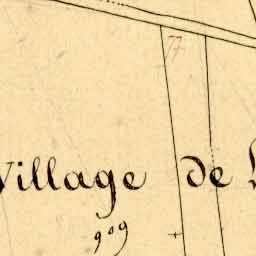 77
Village de
909